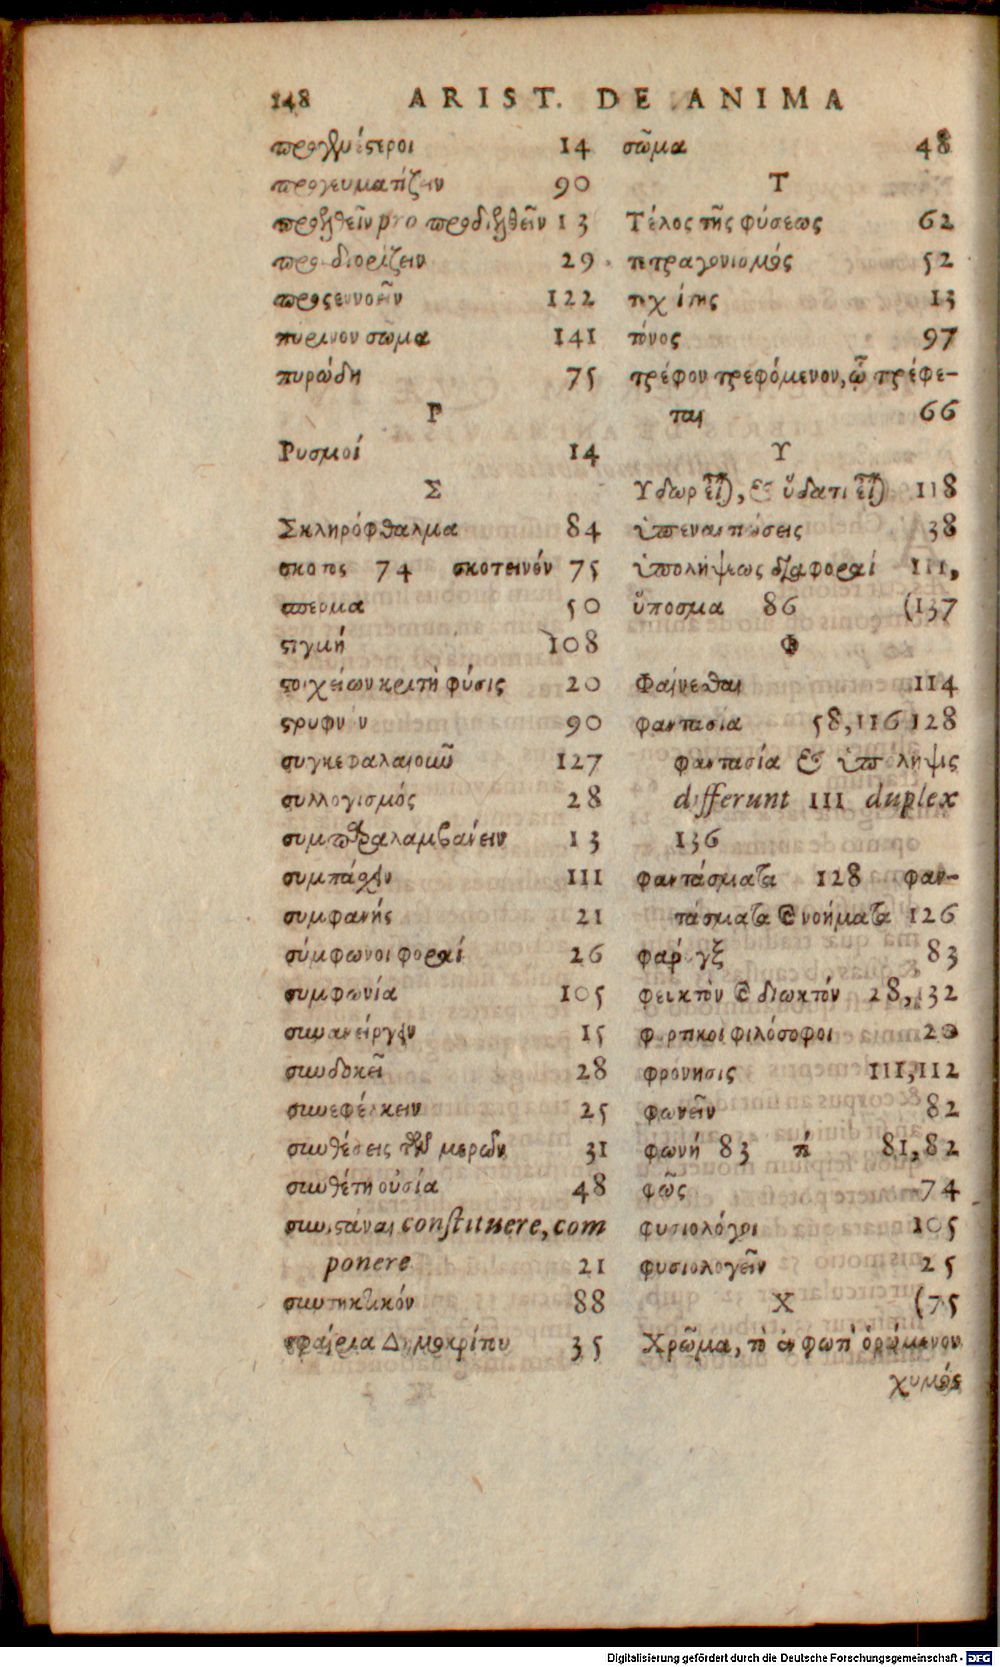 148 ARIST. DE ANIMA
προγενέστεροι 14
προγευματίζειν 90
προελθεῖν pro προδιελθεῖν 13
προσδιορίζειν 29
προςεννοεῖν 122
πύρινον σῶμα 141
πυρώδη 75
Ρ
Ρυσμοί 14
Σ
Σκληρόφθαλμα 84
σκότος 74 σκοτεινόν 75
σπέρμα 50
στιγμή 108
στοιχείων κριτὴ φύσις 20
στρυφνόν 90
συγκεφαλαιοῦν 127
συλλογισμός 28
συμπαραλαμβάνειν 13
συμπάσχειν 111
συμφανής 21
σύμφωνοι φοραί 26
συμφωνία 105
συνανείργειν 15
συνδοκεῖ 28
συνεφέλκειν 25
συνθέσεις τῶν μερῶν 31
συνθέτη οὐσία 48
συνιστάναι constituere, com
ponere 21
συντηκτικόν 88
σφαίρια Δημοκρίτου 35
σῶμα 48
Τ
Τέλος τῆς φύσεως 62
τετραγονισμός 52
τεχίτης 13
τόνος 97
τρέφον τρεφόμενον, ᾧ τρέφε-
ται 66
Υ
Υδωρ εἶναι, & ὕδατι εἶναι 118
ὑπεναντιώσεις 38
ὑπολήψεως διαφοραί 111,
ὕποσμα 86 (137
Φ
Φαίνεσθαι 114
φαντασία 58,116 128
φαντασία & ὑπόληψις
differunt 111 duplex
136
φαντάσματα 128 φαν-
τάσματα & νοήματα 126
φάρυγξ 83
φευκτὸν & διωκτόν 28,132
φορτικοὶ φιλόσοφοι 20
φρόνησις 111,112
φωνεῖν 82
φωνή 83 τί 81,82
φῶς 74
φυσιολόγοι 105
φυσιολογεῖν 25
Χ (75
Χρῶμα, τὸ ἐν φωτὶ ὁρώμενον
χυμός
Digitalisierung gefördert durch die Deutsche Forschungsgemeinschaft - DFG